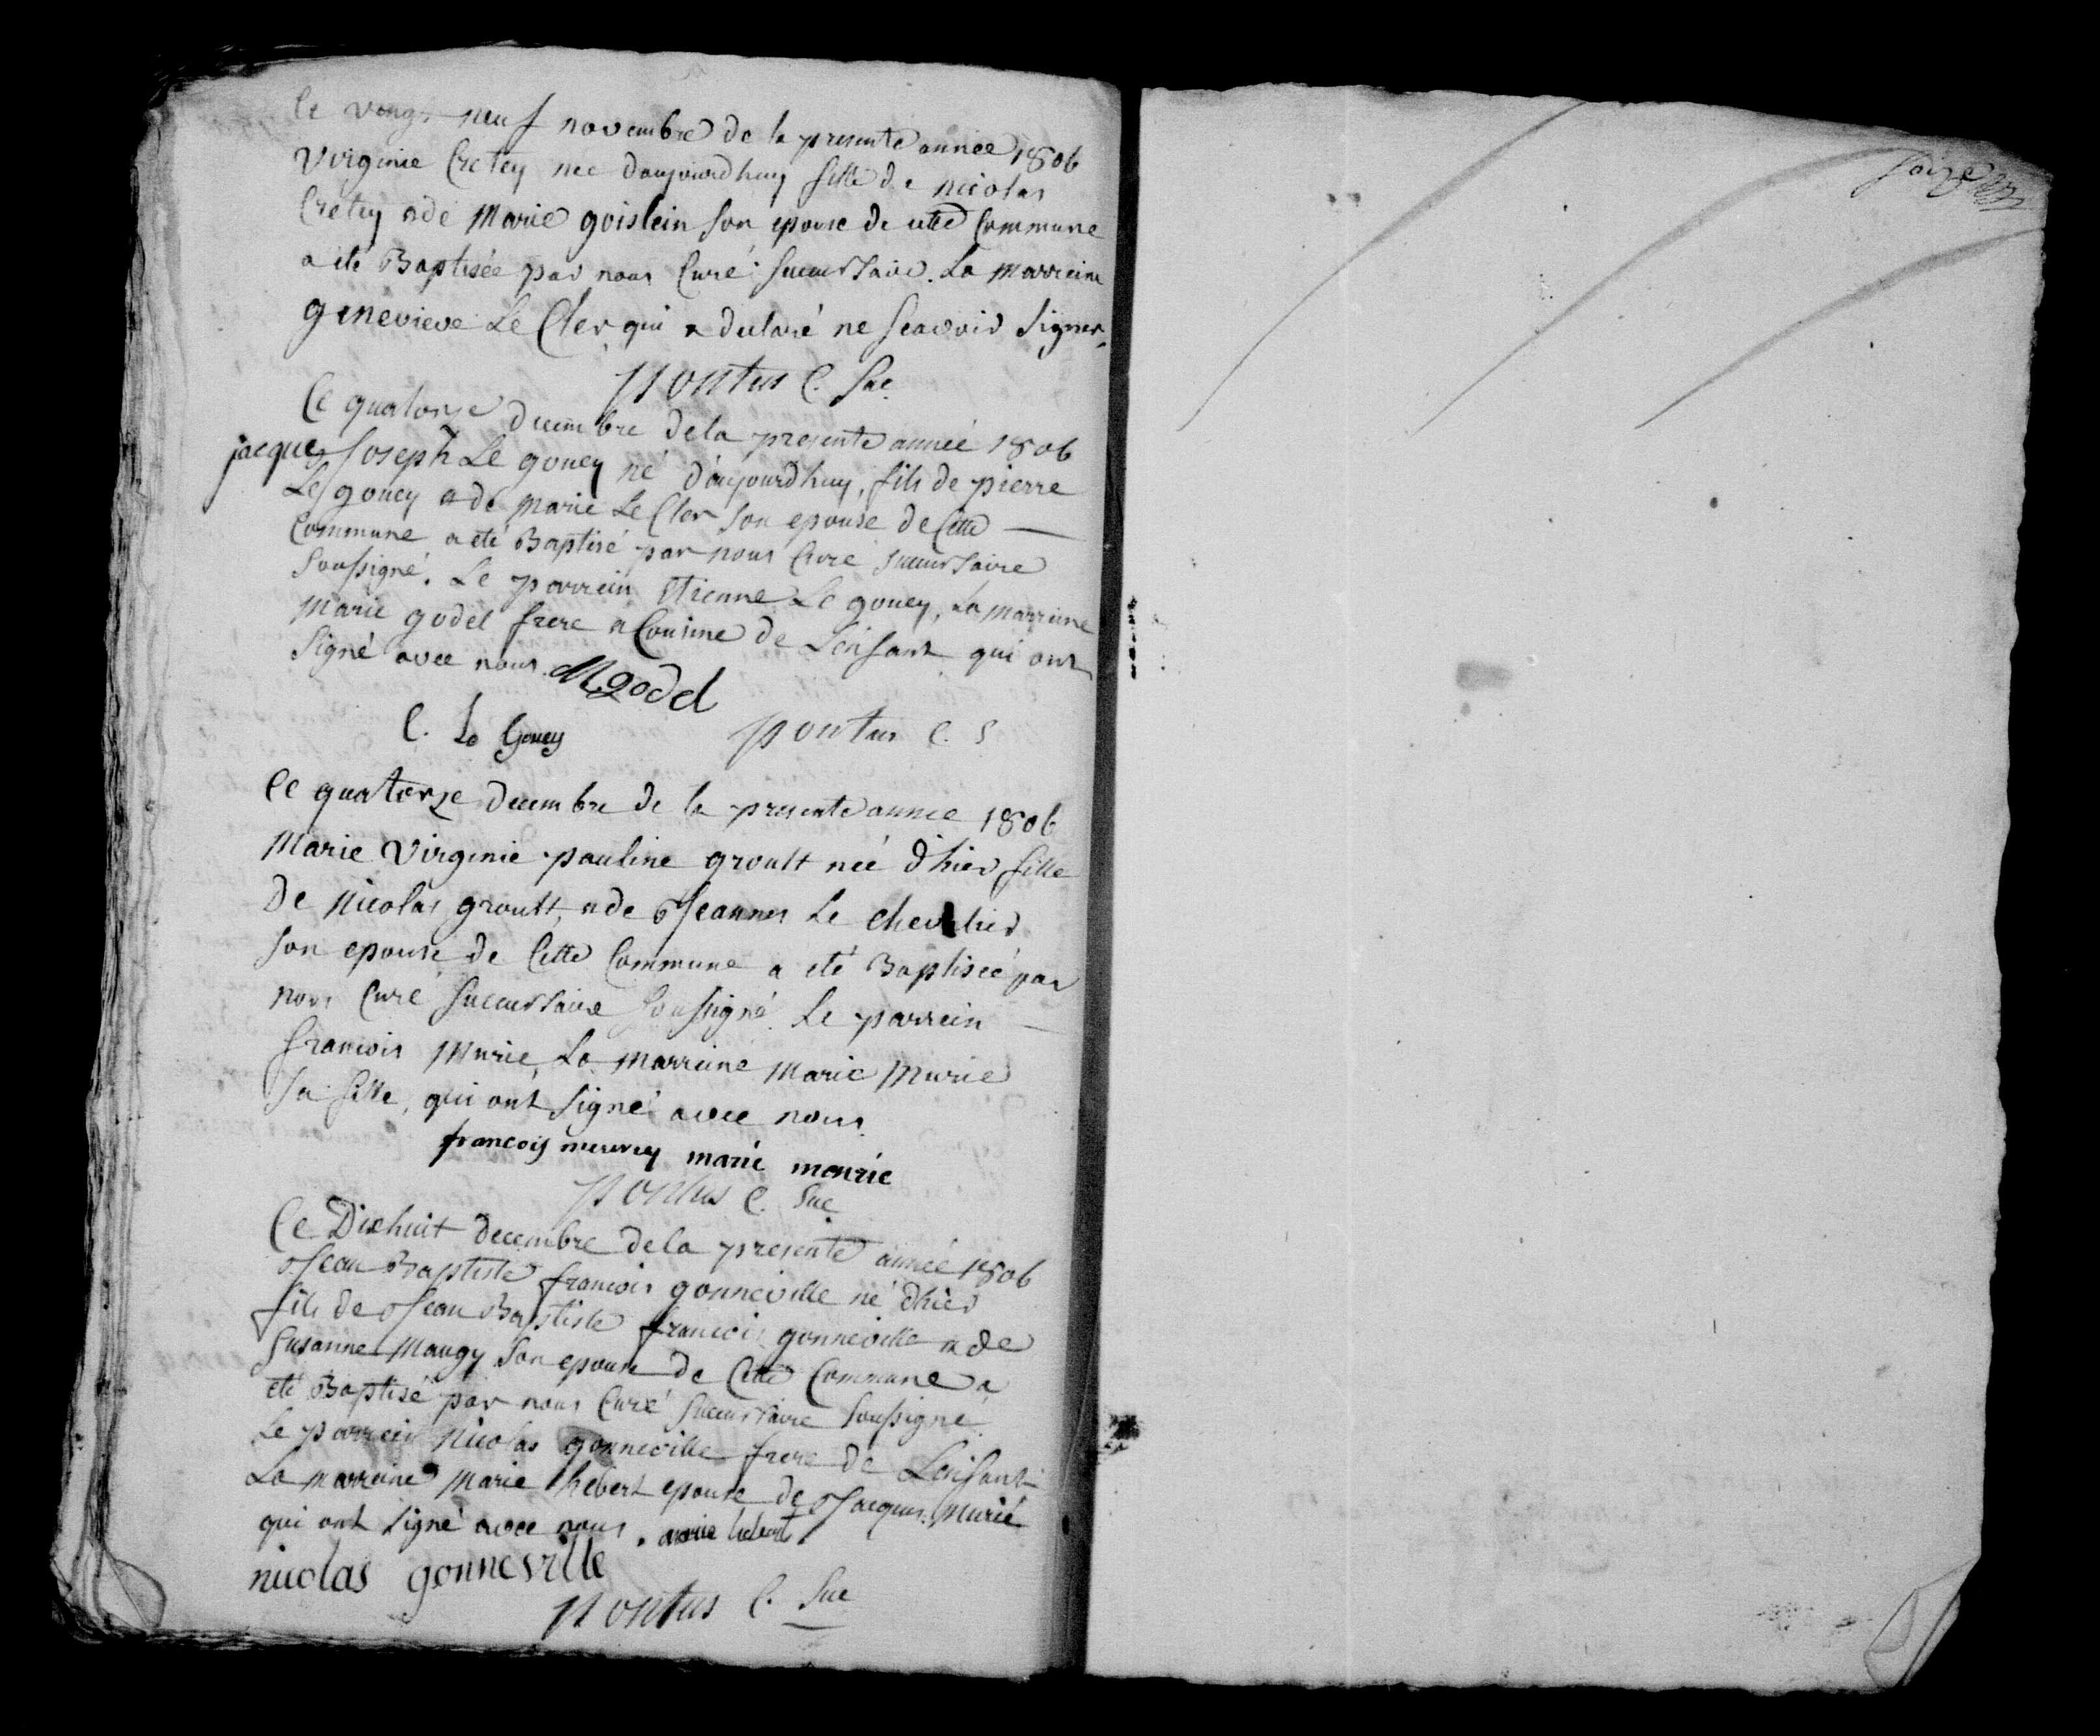 Ce vengt neuf novembre de la presente année 1806
Virginie Cretey neé daujourdhuy fille de nicolas
Cretey et de Marie goislein son epouse de cette Commune
a eté Baptisée par nous Curé succursaire. La marreine
genevieve Le Cler qui a declaré ne scavoir signer.
Pontus C. Suc
Ce quatorze decembre de la presente année 1806
jacque Joseph Le gouey né d'aujourdhuy, fils de pierre
Le gouey et de marie Le Cler son epouse de Cette
Commune a eté Baptisé par nous Curé succursaire
soussigné. Le parrein Etienne Le gouey, La marreine
Marie godel frere et Cousine de L'enfant qui ont
signé avec nous. M godel
E. Le Gouey pontus C. S
Ce quatorze decembre de la presente année 1806
Marie Virginie pauline groult neé d'hier fille
De Nicolas groult, et de Jeanne Le chevalier
son epouse de Cette Commune a eté Baptisée par
nous Curé succursaire soussigné. Le parrein
francois Murie, La marreine Marie Murie
sa fille, qui ont signé avec nous.
francois meurey marie meurie
Pontus C. Suc
Ce Dixhuit decembre dela presente année 1806
Jean Baptiste francois gonneville né d'hier
fils de Jean Baptiste francois gonneville et de
Susanne Maugy son epouse de Cette Commune a
eté Baptisé par nous Curé succursaire soussigné.
Le parrein Nicolas gonneville frere de L'enfant
La marreine Marie hebert epouse de Jacques Murie
qui ont signé avec nous. marie hebert
nicolas gonnesville
Pontus C. Suc